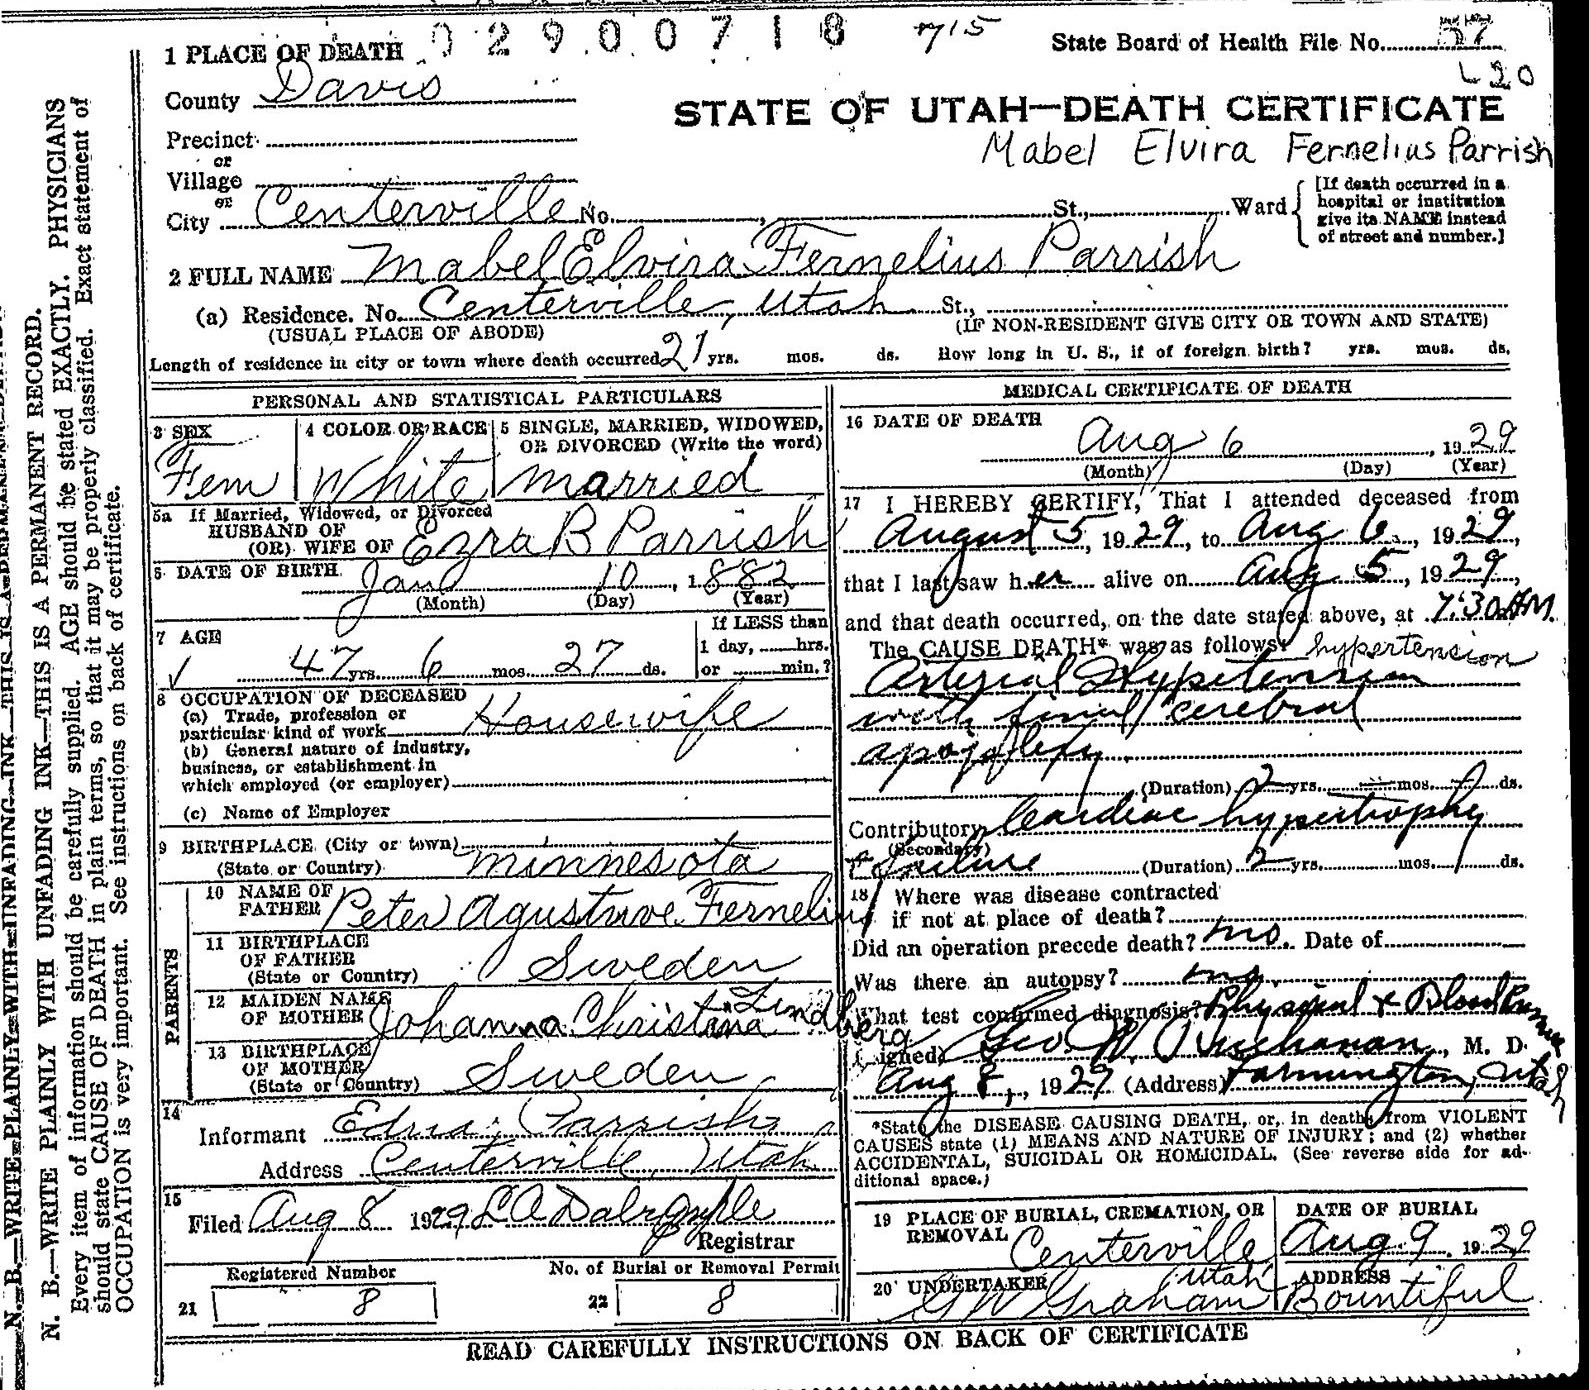 0 2 9 0 0 7 1 8 715
State Board of Health File No. 57
420
1 PLACE OF DEATH
County Davis
STATE OF UTAH—DEATH CERTIFICATE
Mabel Elvira Fernelius Parrish
Precinct
or
Village
or
City Centerville No. , St., Ward
[If death occurred in a
hospital or institution
give its NAME instead
of street and number.]
2 FULL NAME Mabel Elvira Fernelius Parrish
(a) Residence. No. Centerville, Utah St.,
(USUAL PLACE OF ABODE) (IF NON-RESIDENT GIVE CITY OR TOWN AND STATE)
Length of residence in city or town where death occurred 21 yrs. mos. ds. How long in U. S., if of foreign birth? yrs. mos. ds.
PERSONAL AND STATISTICAL PARTICULARS
3 SEX
Fem
4 COLOR OR RACE
White
5 SINGLE, MARRIED, WIDOWED,
OR DIVORCED (Write the word)
married
5a If Married, Widowed, or Divorced
HUSBAND OF
(OR) WIFE OF Ezra B Parrish
6 DATE OF BIRTH Jan 10, 1882
(Month) (Day) (Year)
7 AGE
47 yrs 6 mos. 27 ds.
If LESS than
1 day, hrs.
or min.?
8 OCCUPATION OF DECEASED
(a) Trade, profession or
particular kind of work Housewife
(b) General nature of industry,
business, or establishment in
which employed (or employer)
(c) Name of Employer
9 BIRTHPLACE (City or town)
(State or Country) minnesota
PARENTS
10 NAME OF
FATHER Peter Agustave Fernelius
11 BIRTHPLACE
OF FATHER
(State or Country) Sweden
12 MAIDEN NAME
OF MOTHER Johanna Christina Lindberg
13 BIRTHPLACE
OF MOTHER
(State or Country) Sweden
14
Informant Edna Parrish
Address Centerville, Utah
15
Filed Aug 8 1929 L A Dalrymple
Registrar
Registered Number
21 8
No. of Burial or Removal Permit
22 8
MEDICAL CERTIFICATE OF DEATH
16 DATE OF DEATH
Aug 6, 1929
(Month) (Day) (Year)
17 I HEREBY CERTIFY, That I attended deceased from
August 5, 1929, to Aug 6, 1929,
that I last saw her alive on Aug 5, 1929,
and that death occurred, on the date stated above, at 7:30 AM.
The CAUSE DEATH* was as follows: hypertension
Arterial Hypertension
with final cerebral
apoplexy
(Duration) 2 yrs. mos. ds.
Contributory Cardiac hypertrophy
(Secondary)
failure (Duration) 2 yrs. mos. ds.
18 Where was disease contracted
if not at place of death?
Did an operation precede death? no. Date of
Was there an autopsy? no
What test confirmed diagnosis? Physical & Blood Pressure
(Signed) Geo. W. Buchanan, M. D.
Aug 8, 1929 (Address) Farmington, Utah
*State the DISEASE CAUSING DEATH, or, in deaths from VIOLENT
CAUSES state (1) MEANS AND NATURE OF INJURY; and (2) whether
ACCIDENTAL, SUICIDAL OR HOMICIDAL. (See reverse side for ad-
ditional space.)
19 PLACE OF BURIAL, CREMATION, OR
REMOVAL Centerville
Utah
DATE OF BURIAL
Aug 9, 1929
20 UNDERTAKER
G W Graham
ADDRESS
Bountiful
READ CAREFULLY INSTRUCTIONS ON BACK OF CERTIFICATE
N. B.—WRITE PLAINLY WITH UNFADING INK—THIS IS A PERMANENT RECORD.
Every item of information should be carefully supplied. AGE should be stated EXACTLY. PHYSICIANS
should state CAUSE OF DEATH in plain terms, so that it may be properly classified. Exact statement of
OCCUPATION is very important. See instructions on back of certificate.